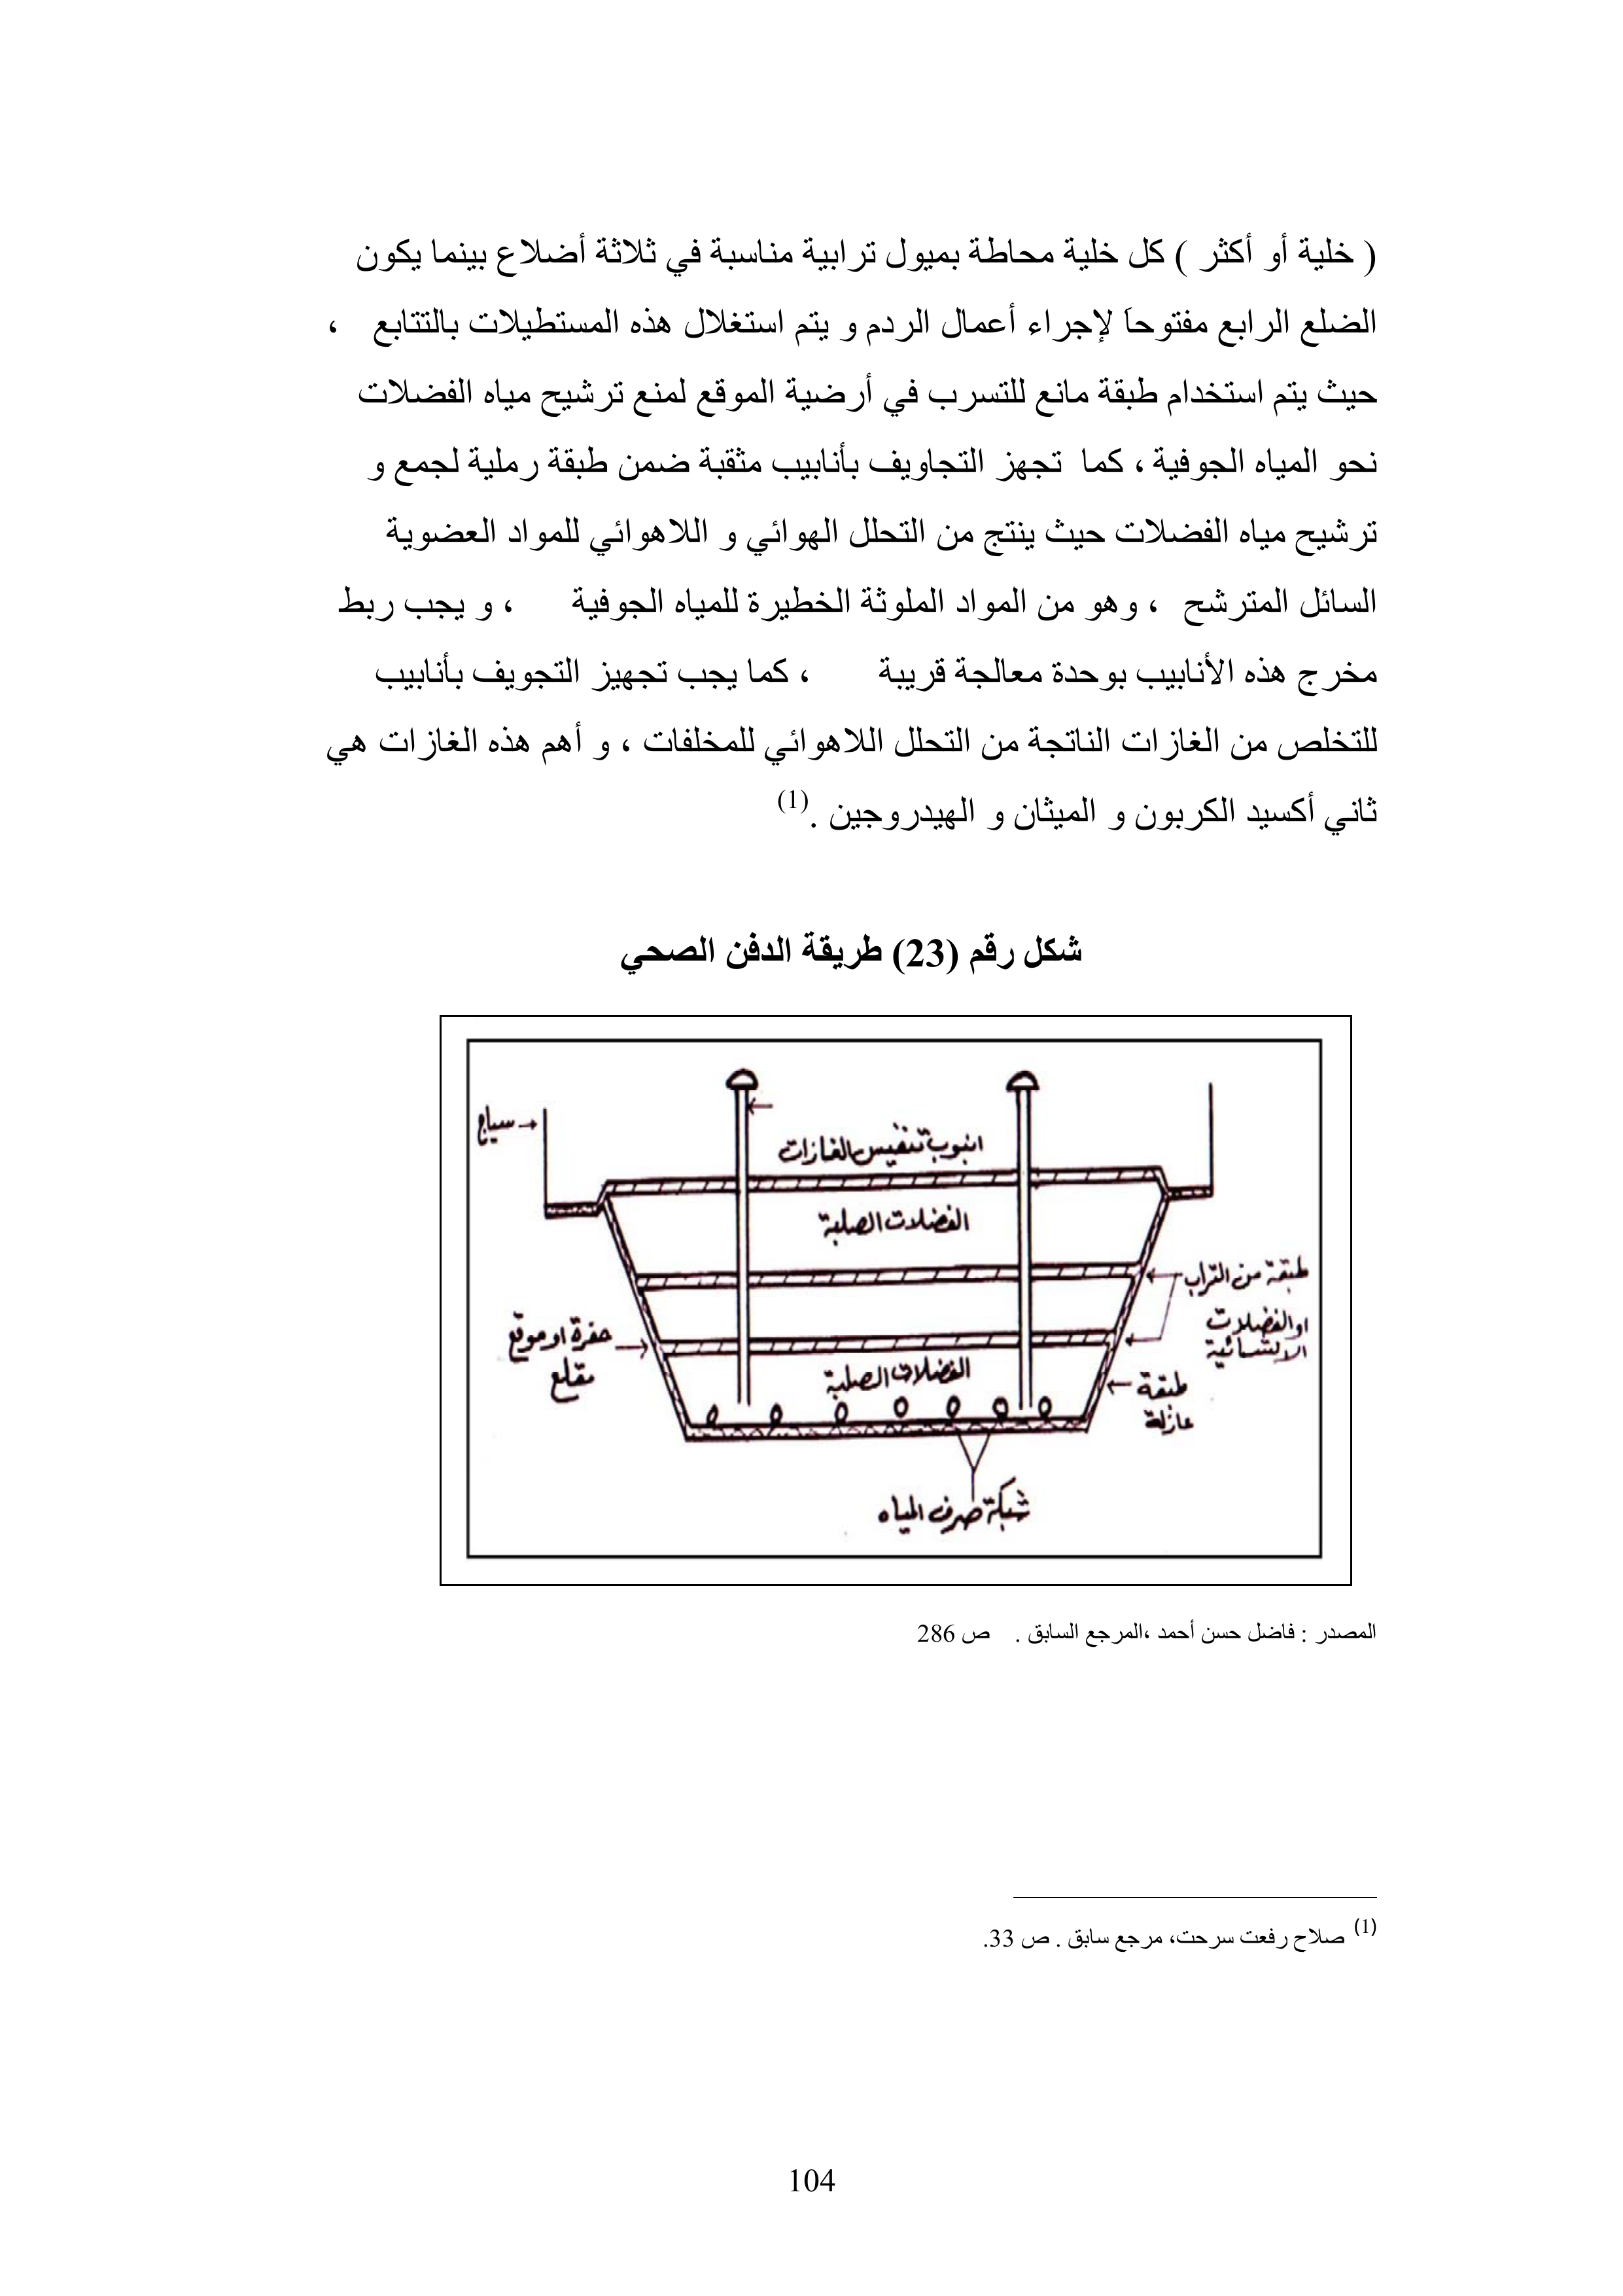 ( خلية أو أكثر ) كل خلية محاطة بميول ترابية مناسبة في ثلاثة أضلاع بينما يكون
الضلع الرابع مفتوحاَ لإجراء أعمال الردم و يتم استغلال هذه المستطيلات بالتتابع ،
حيث يتم استخدام طبقة مانع للتسرب في أرضية الموقع لمنع ترشيح مياه الفضلات
نحو المياه الجوفية ، كما تجهز التجاويف بأنابيب مثقبة ضمن طبقة رملية لجمع و
ترشيح مياه الفضلات حيث ينتج من التحلل الهوائي و اللاهوائي للمواد العضوية
السائل المترشح ، وهو من المواد الملوثة الخطيرة للمياه الجوفية ، و يجب ربط
مخرج هذه الأنابيب بوحدة معالجة قريبة ، كما يجب تجهيز التجويف بأنابيب
للتخلص من الغازات الناتجة من التحلل اللاهوائي للمخلفات ، و أهم هذه الغازات هي
ثاني أكسيد الكربون و الميثان و الهيدروجين .(1)
شكل رقم (23) طريقة الدفن الصحي
سياج
انبوب تنفيس الغازات
الفضلات الصلبة
طبقة من التراب
او الفضلات
الانشائية
حفرة او موقع
مقلع
الفضلات الصلبة
طبقة
عازلة
شبكة صرف المياه
المصدر : فاضل حسن أحمد ،المرجع السابق . ص 286
(1) صلاح رفعت سرحت، مرجع سابق . ص 33.
104